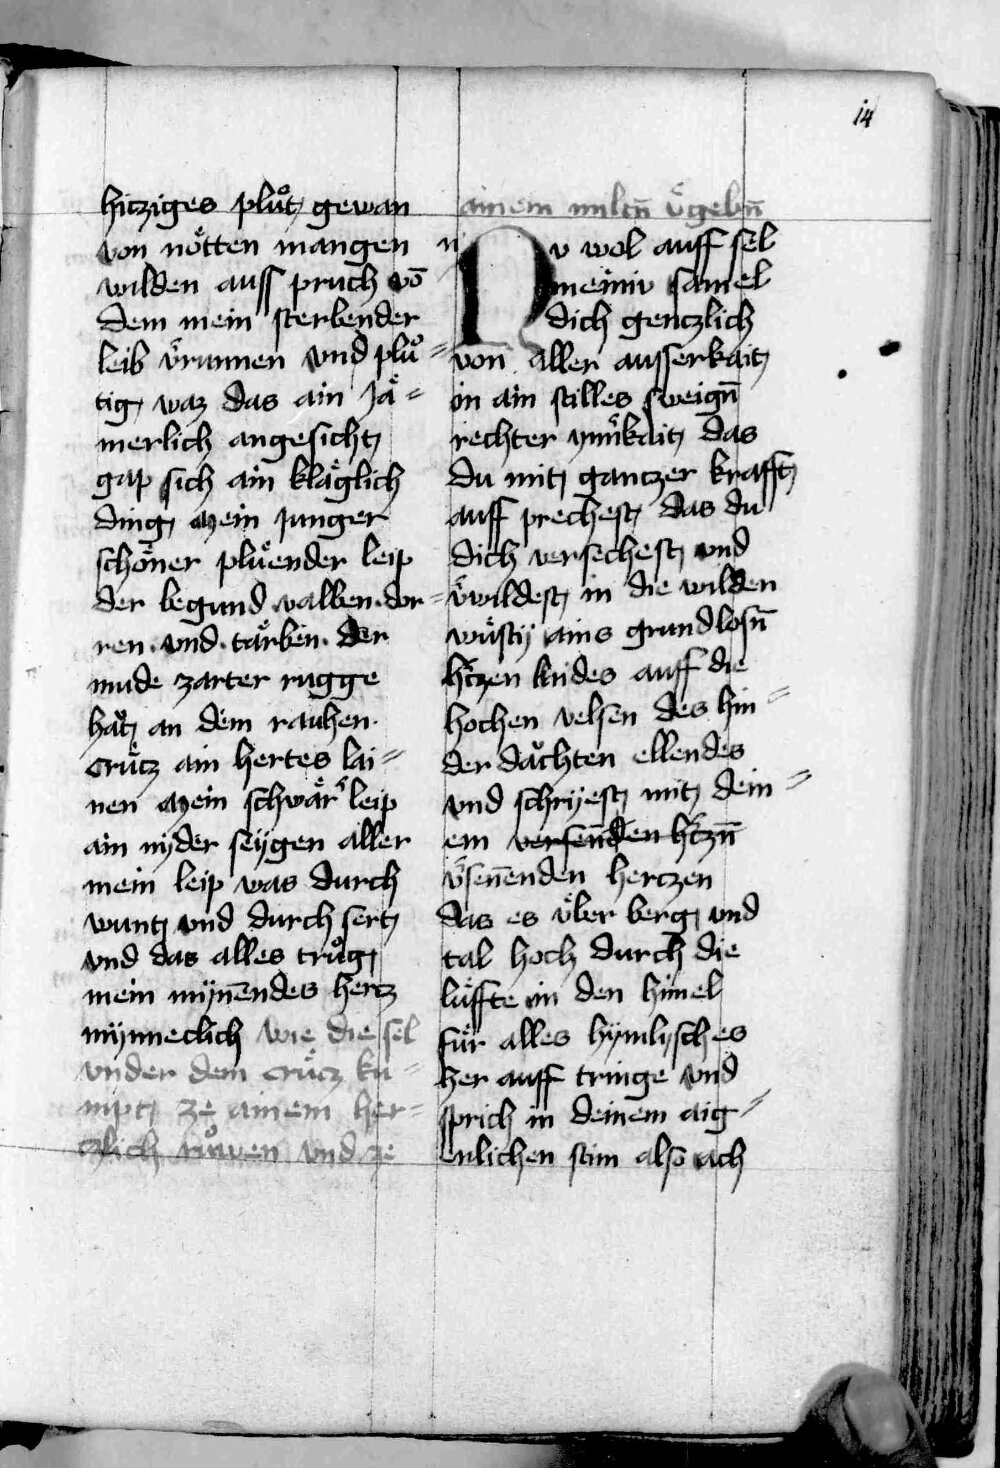 14
hicziges pluͦt gewan
von noͤtten mangen
wilden auss pruch vō
dem mein sterbender
leib v̾runnen vnd pluͦ=
tig waz das ain Jaͤ=
merlich angesicht
gap sich ain klaͤglich
ding Mein Junger
schoͤner pluͤender leip
der begund valben·dor=
ren·vnd·taͤrben·der
mude zarter rugge
haͤt an dem rauhen·
cruͤcz ain hertes lai=
nen Mein schwaͤr̾ leip
ain nyder seygen aller
mein leip was durch
wunt vnd durch sert
vnd das alles truͦg
mein mynēndes hercz
mynneclich wie die sel
vnder dem cruͤcz ku=
mpt ze ainem her=
czlich ruͦwen vnd ze
ainem miltn̄ v̾gebn̄
n
Nv wol auff sel
meiniv samel
dich genczlich
von aller ausserkait
in ain stilles sweign̄
rechter ynn̾kait das
du mit ganczer krafft
auff prechest das du
dich versechest vnd
v̾wildest in die wilden
wuͤsty ains grundlosn̄
h̾czen laides auff die
hochen velsen des hin=
der daͤchten ellendes
vnd schryest mit dein=
em versenden h̾czn̄
v̾senēnden herczen
das es vͤber berg vnd
tal hoch durch die
luͤffte in den himel
fuͤr alles hymlysches
her auff tringe vnd
sprich in deinem aig=
enlichen stim also ach